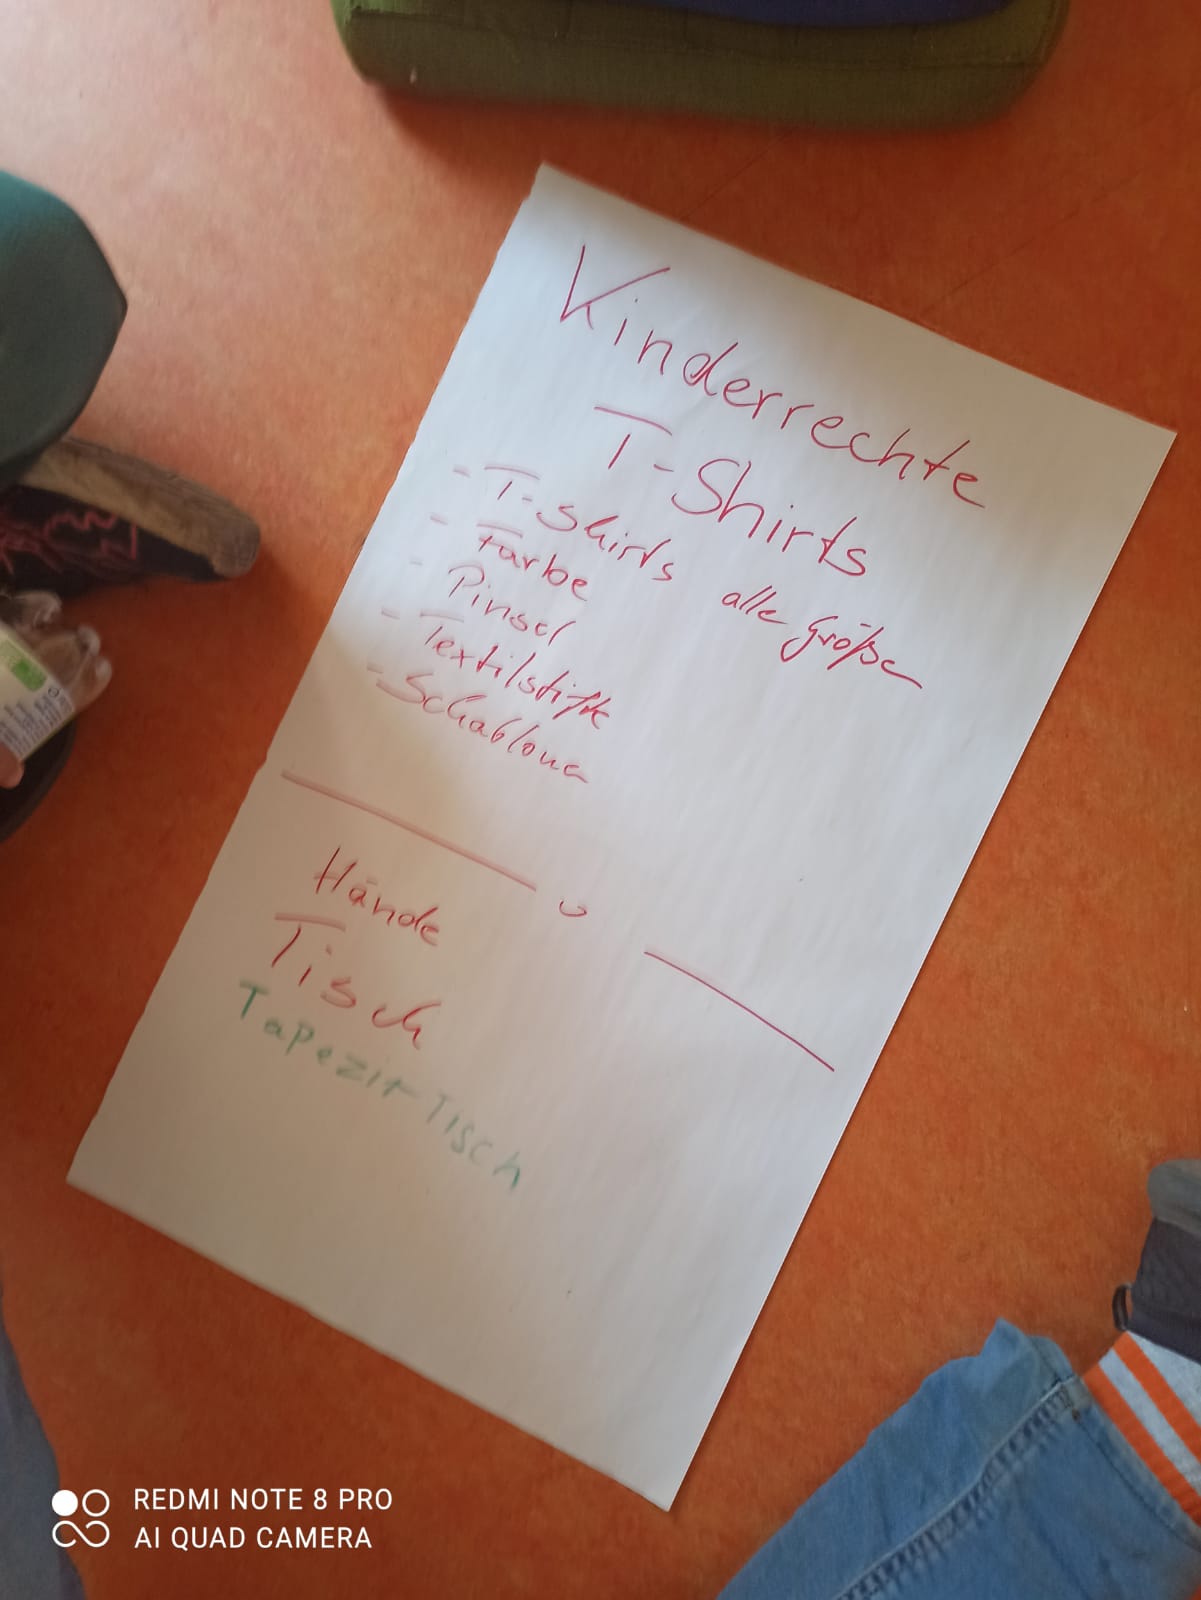 Kinderrechte
T-Shirts
- T-Shirts alle Größe
- Farbe
- Pinsel
- Textilstifte
- Schablone
Hände
Tisch
Tapezirtisch
REDMI NOTE 8 PRO
AI QUAD CAMERA